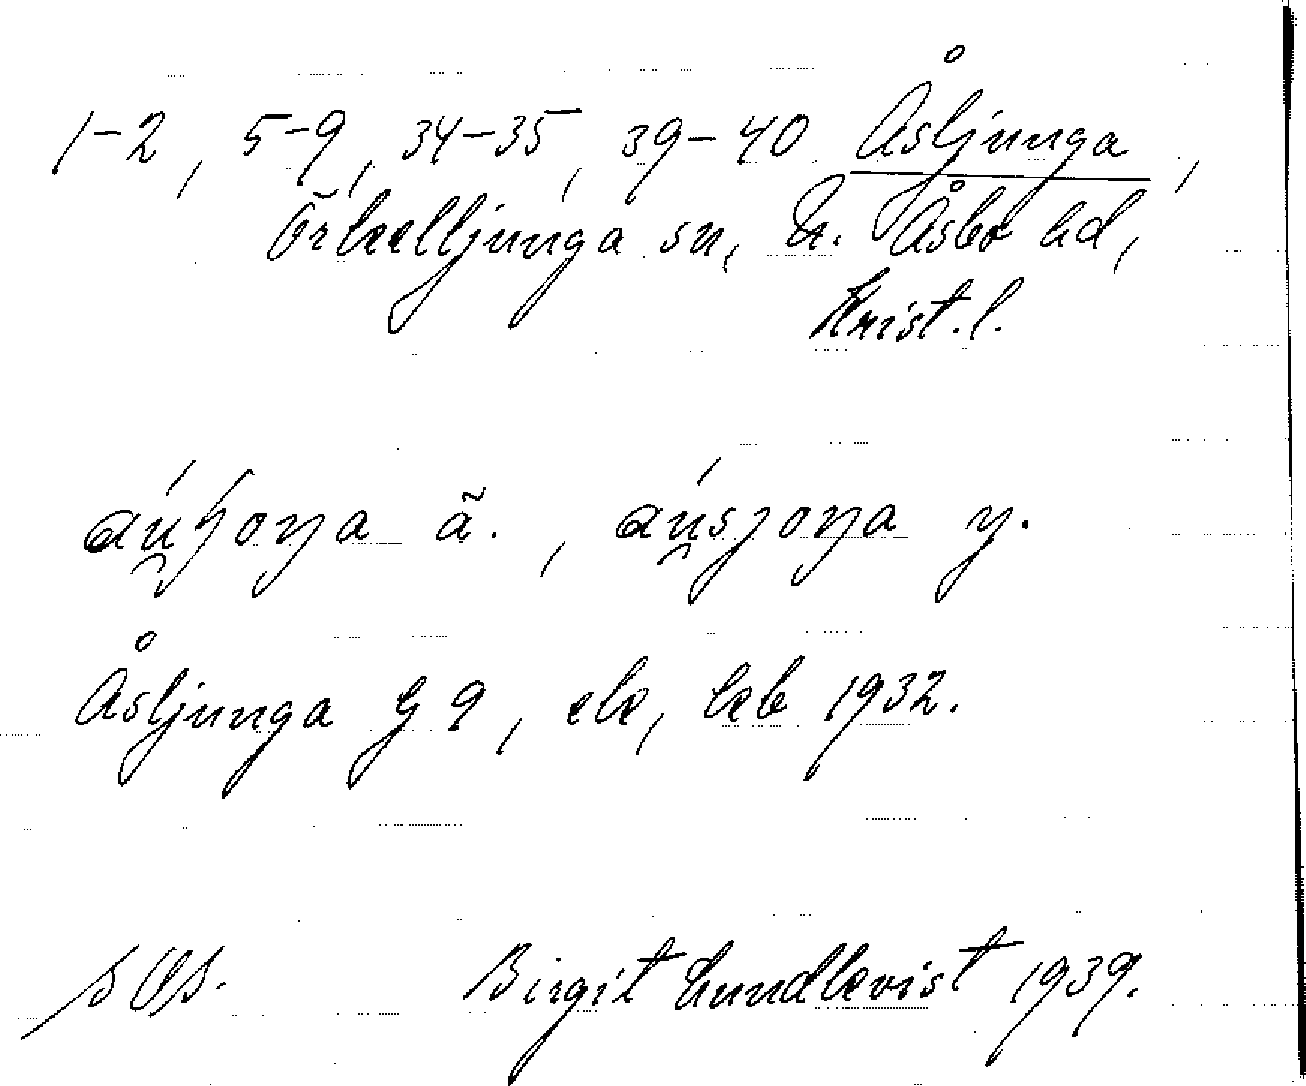 1-2, 5-9, 34-35, 39-40 Åsljunga,
Örkelljunga sn, N. Åsbo hd,
Krist. l.
ä. , y.
Åsljunga G 9, ek, 1932.
Birgit Lundkvist 1939.